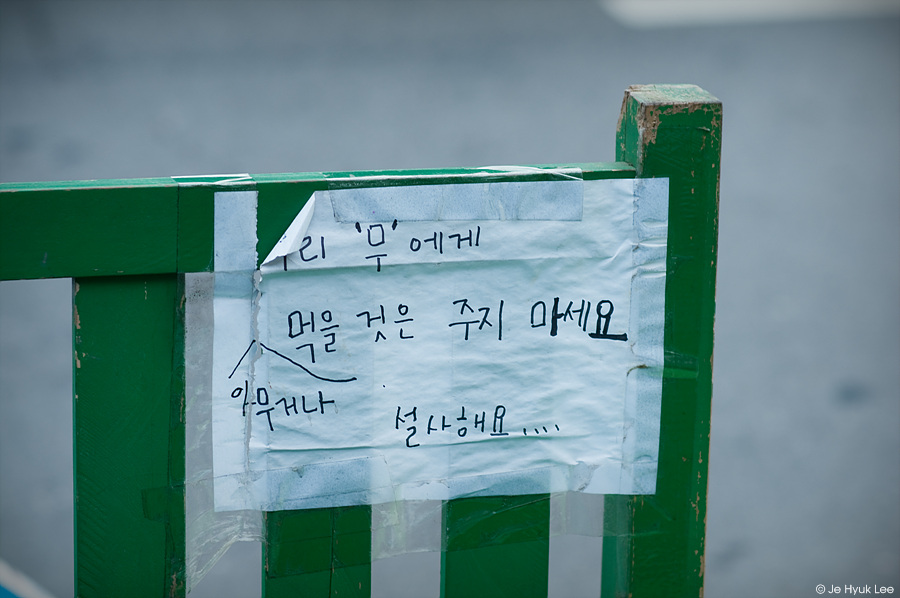 리 '무'에게
먹을 것은 주지 마세요
아무거나
설사해요....
© Je Hyuk Lee